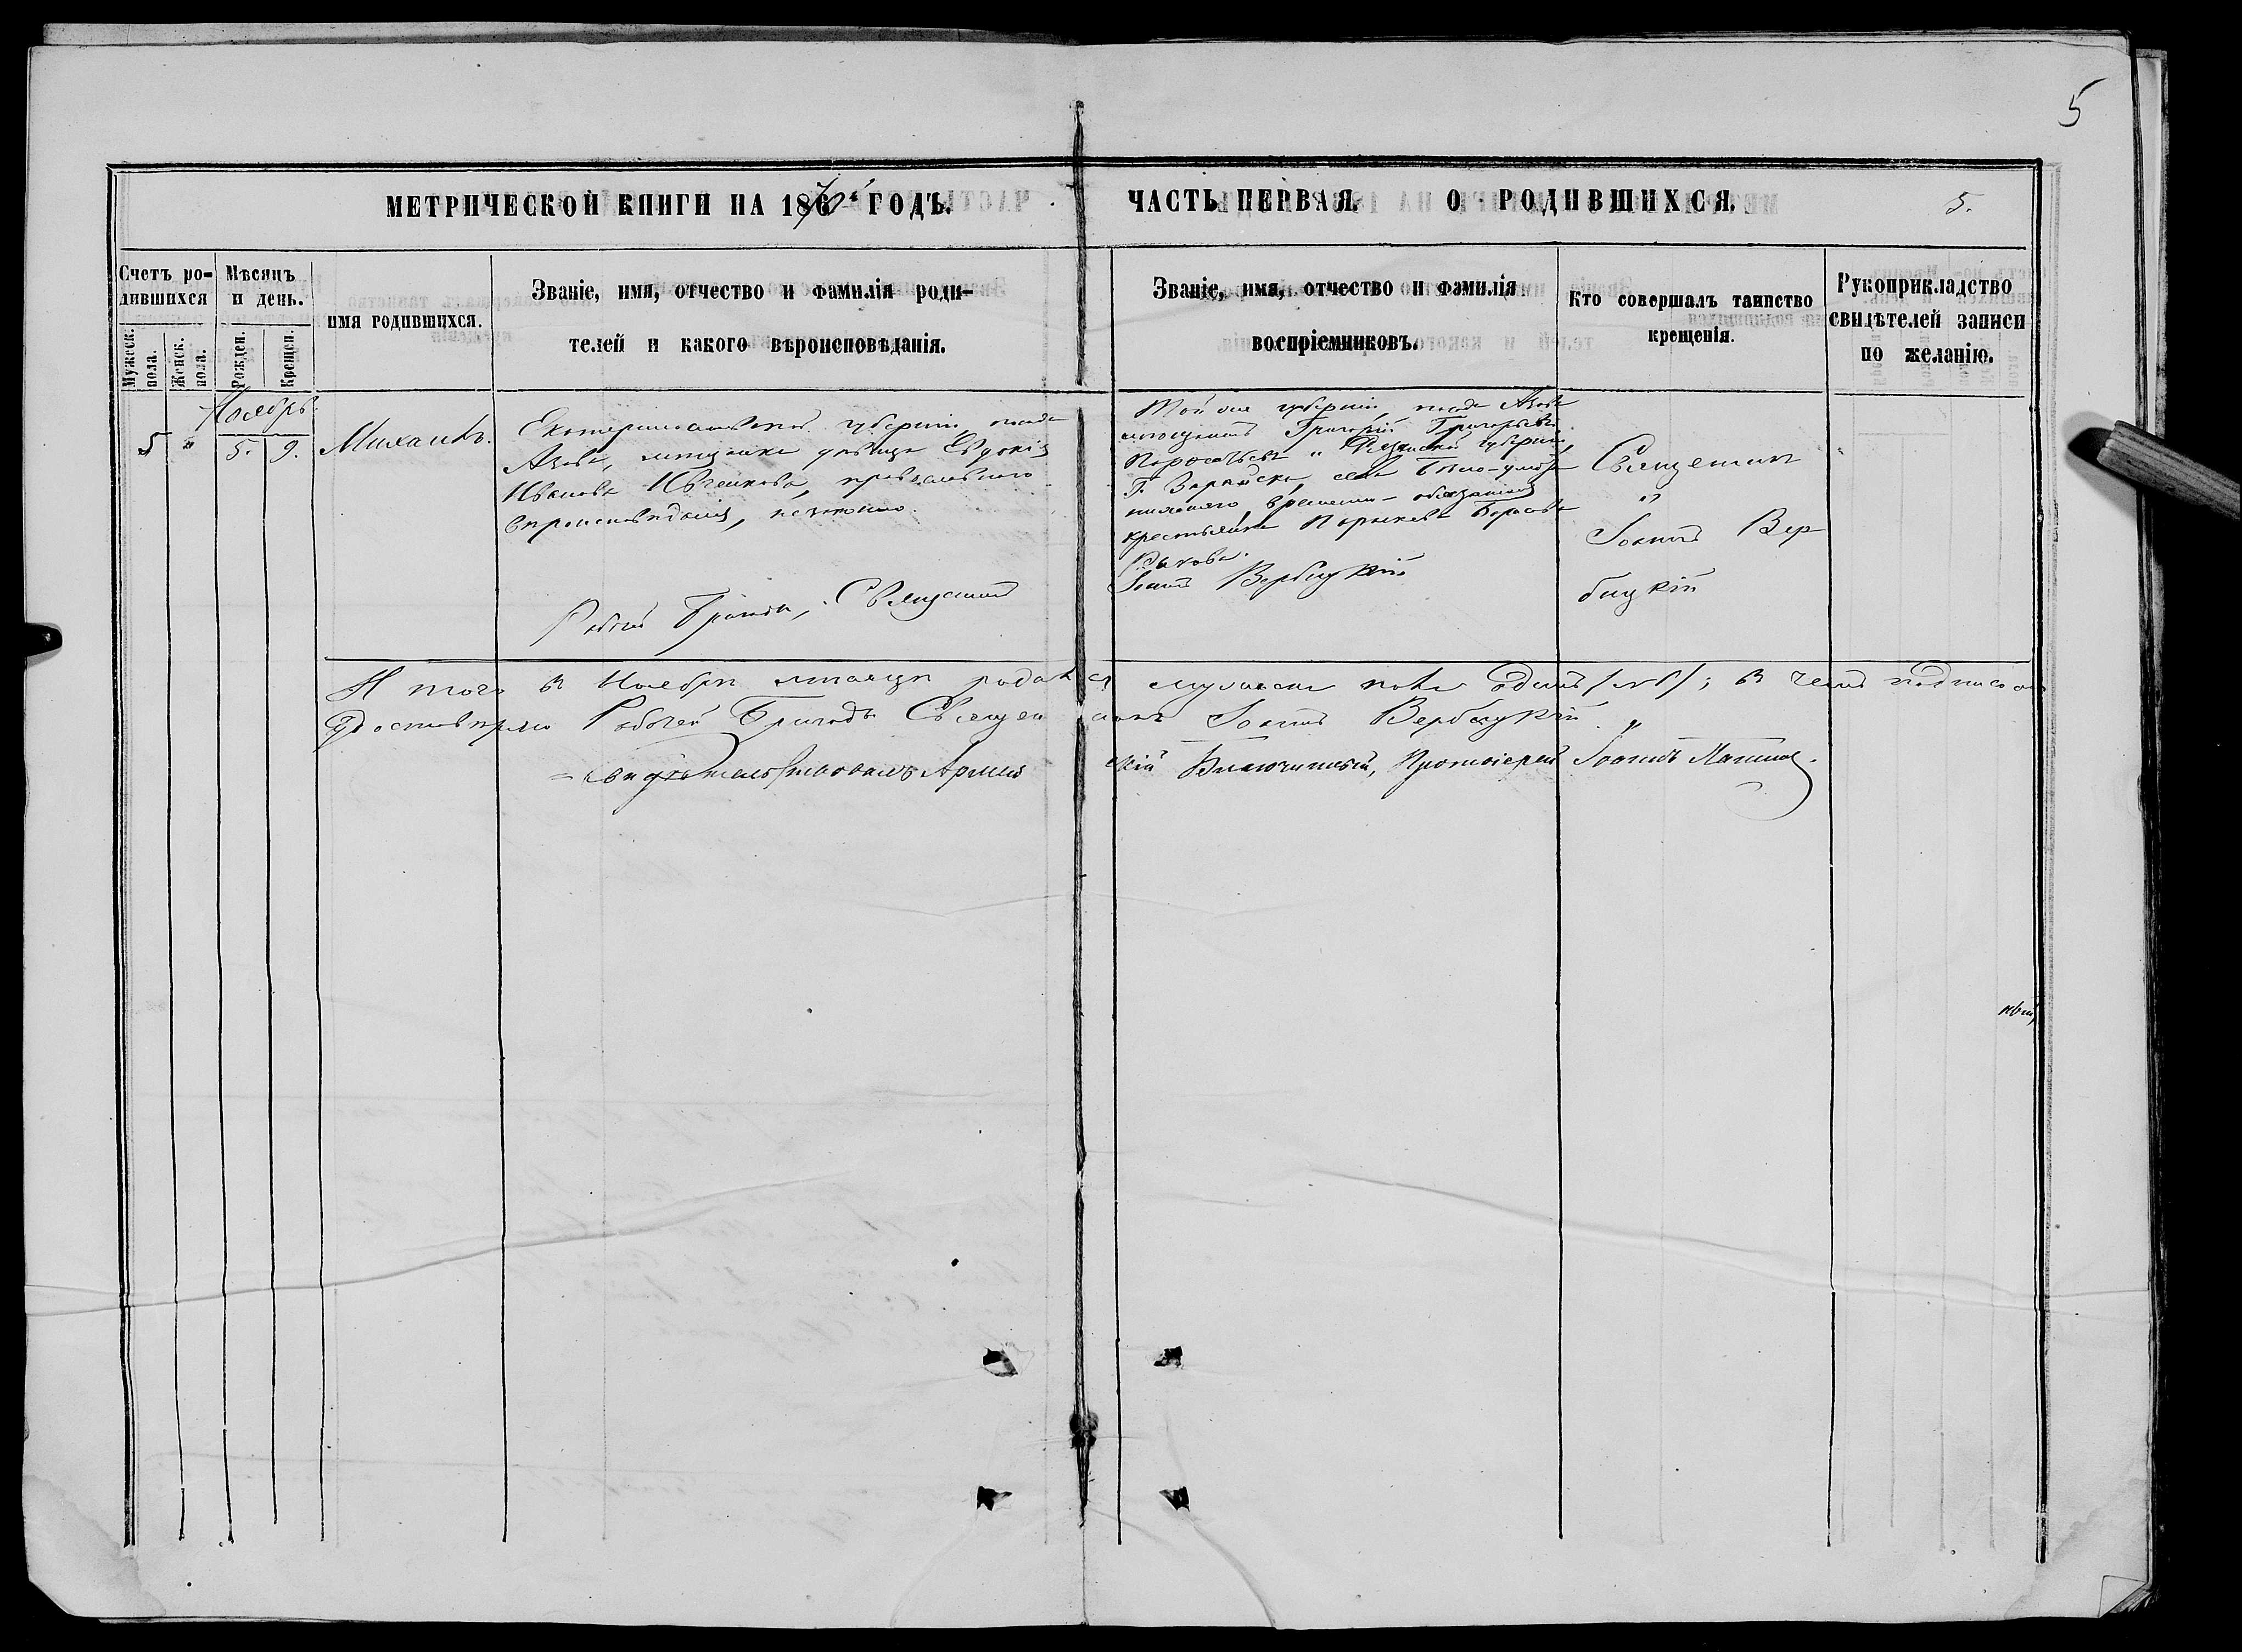 5
МЕТРИЧЕСКОЙ КНИГИ НА 1870й ГОДЪ. ЧАСТЬ ПЕРВАЯ. О РОДИВШИХСЯ. 5.
Счетъ ро-
дившихся
Мужеск. пола.
Женск. пола.
Мѣсяцъ
и день.
Рожден.
Крещен.
имя родившихся.
Званіе, имя, отчество и фамилія роди-
телей и какого вѣроисповѣданія.
Званіе, имя, отчество и фамилія
воспріемниковъ.
Кто совершалъ таинство
крещенія.
Рукоприкладство
свидѣтелей записи
по желанію.
Ноябрь.
5 " 5. 9. Михаилъ.
губерніи посада
Азова, мѣщанка дѣвица Евдокія
Иванова православнаго
вѣроисповѣданія,
Той же губерніи, посада Азова
Григорій Григорьевъ
и Рязанской губерніи,
Г. Зарайска, села
временно-обязанная
крестьянка
Рыкова.
Священникъ
"
Іоаннъ Вер-
бицкій
Священникъ
Іоаннъ Вербицкій
И того въ Ноябрѣ мѣсяцѣ родился мужеска пола одинъ (№1); въ чемъ
Рабочей Бригады Священникъ Іоаннъ Вербицкій.
Свидѣтельствовалъ Армян­скій Благочинный, Протоіерей Іоаннъ